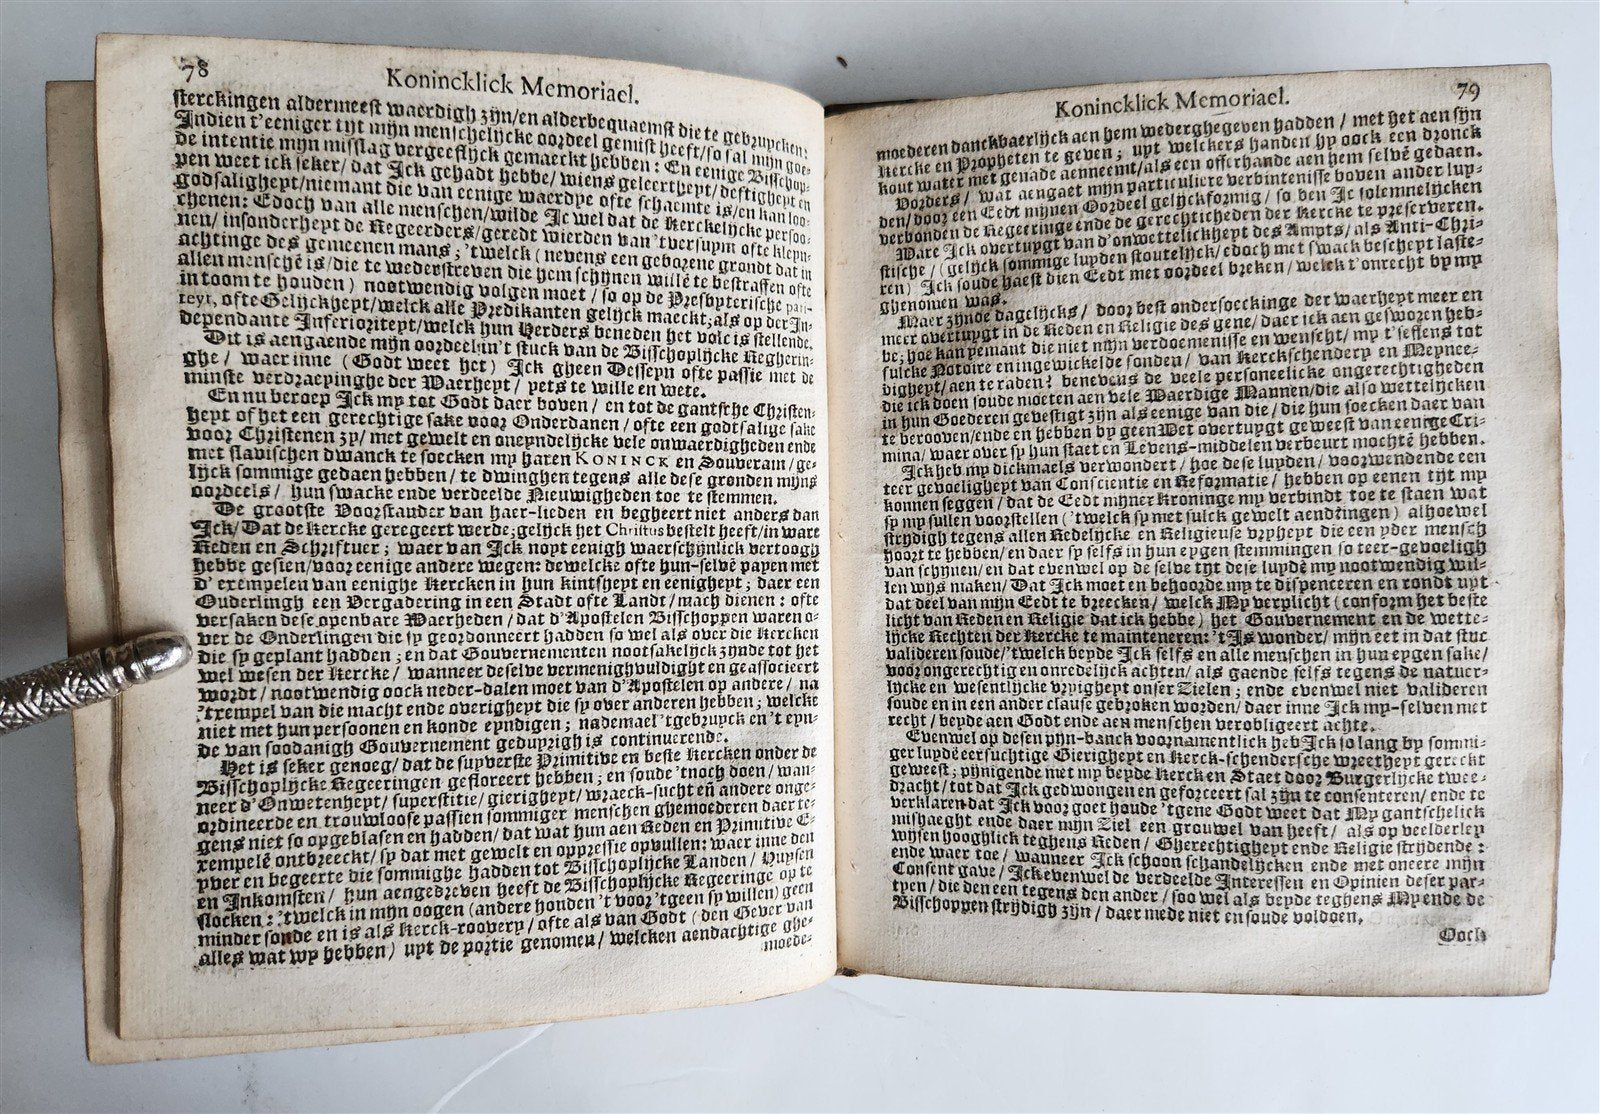 78
Konincklick Memoriael.
sterckingen aldermeest waerdigh zijn/en alderbequaemst die te gebruycken:
Indien t'eeniger tijt mijn menschelijcke oordeel gemist heeft/so sal mijn goe-
de intentie mijn misslag vergeeflijck gemaeckt hebben: En eenige Bisschop-
pen weet ick seker/ dat Ick gehadt hebbe/ wiens geleertheyt/deftigheyt en
godsaligheyt/niemant die van eenige waerdye ofte schaemte is/en kan loo-
chenen: Edoch van alle menschen/wilde Ic wel dat de Kerckelijcke persoo-
nen/ insonderheyt de Regeerders/geredt wierden van 'tversuym ofte kleyn-
achtinge des gemeenen mans; 'twelck (nevens een geborene grondt dat in
allen menschē is/die te wederstreven die hem schijnen willē te bestraffen ofte
in toom te houden) nootwendig volgen moet/so op de Presbyterische pari-
teyt, ofte Gelijckheyt/welck alle Predikanten gelijck maeckt;als op der In-
dependante Inferioriteyt/welck hun Herders beneden het volc is stellende.
Dit is aengaende mijn oordeel in't stuck van de Bisschoplijcke Regherin-
ghe/ waer inne (Godt weet het) Ick gheen Desseyn ofte passie met de
minste verdraeyinghe der Waerheyt/ yets te wille en wete.
En nu beroep Ick my tot Godt daer boven/ en tot de gantsche Christen-
heyt of het een gerechtige sake voor Onderdanen/ ofte een godtsalige sake
voor Christenen zy/ met gewelt en oneyndelijcke vele onwaerdigheden ende
met slavischen dwanck te soecken my haren KONINCK en Souverain/ge-
lijck sommige gedaen hebben/ te dwinghen tegens alle dese gronden mijns
oordeels/ hun swacke ende verdeelde Nieuwigheden toe te stemmen.
De grootste Voorstander van haer-lieden en begheert niet anders dan
Ick/ Dat de Kercke geregeert werde;gelijck het Christus bestelt heeft/in ware
Reden en Schriftuer; waer van Ick noyt eenigh waerschijnlick vertoogh
hebbe gesien/voor eenige andere wegen: dewelcke ofte hun-selvē papen met
d'exempelen van eenighe Kercken in hun kintsheyt en eenigheyt; daer een
Ouderlingh een Vergadering in een Stadt ofte Landt/mach dienen: ofte
versaken dese openbare Waerheden/ dat d'Apostelen Bisschoppen waren o-
ver de Onderlingen die sy geordonneert hadden so wel als over die Kercken
die sy geplant hadden; en dat Gouvernementen nootsakelijck zijnde tot het
wel wesen der Kercke/ wanneer deselve vermenighvuldight en geassocieert
wordt/ nootwendig oock neder-dalen moet van d'Apostelen op andere/ na
'texempel van die macht ende overigheyt die sy over anderen hebben; welcke
niet met hun persoonen en konde eyndigen; nademael 'tgebruyck en 't eyn-
de van soodanigh Gouvernement geduyrigh is continuerende.
Het is seker genoeg/ dat de suyverste Primitive en beste Kercken onder de
Bisschoplijcke Regeeringen gefloreert hebben; en soude 'tnoch doen/ wan-
neer d'Onwetenheyt/ superstitie/ gierigheyt/ wraeck-sucht eñ andere onge-
ordineerde en trouwloose passien sommiger menschen ghemoederen daer te-
gens niet so opgeblasen en hadden/ dat wat hun aen Reden en Primitive E-
xempelē ontbreeckt/ sy dat met gewelt en oppressie opvullen: waer inne den
yver en begeerte die sommighe hadden tot Bisschoplijcke Landen/ Huysen
en Inkomsten/ hun aengedreven heeft de Bisschoplijcke Regeeringe op te
slocken: 'twelck in mijn oogen (andere houden 't voor 'tgeen sy willen) geen
minder sonde en is als Kerck-roovery/ ofte als van Godt (den Gever van
alles wat wy hebben) uyt de portie genomen/ welcken aendachtige ghe-
moede-
79
Konincklick Memoriael.
moederen danckbaerlijck aen hem wederghegeven hadden/ met het aen sijn
Kercke en Propheten te geven; uyt welckers handen hy oock een dronck
kout water met genade aenneemt/als een offerhande aen hem selvē gedaen.
Vorders/ wat aengaet mijn particuliere verbintenisse boven ander luy-
den/door een Eedt mijnen Oordeel gelijckformig/ so ben Ic solemnelijcken
verbonden de Regeeringe ende de gerechticheden der Kercke te preserveren.
Ware Ick overtuygt van d'onwettelickheyt des Ampts/ als Anti-Chri-
stische/ (gelijck sommige luyden stoutelijck/edoch met swack bescheyt laste-
ren) Ick soude haest dien Eedt met oordeel breken/ welck t'onrecht by my
ghenomen was.
Maer zijnde dagelijcks/ door best ondersoeckinge der waerheyt meer en
meer overtuygt in de Reden en Religie des gene/ daer ick aen gesworen heb-
be; hoe kan yemant die niet mijn verdoemenisse en wenscht/ my t'effens tot
sulcke Notoire en ingewickelde sonden/ van Kerckschendery en Meynee-
digheyt/ aen te raden? benevens de veele personeelicke ongerechtigheden
die ick doen soude moeten aen vele Waerdige Mannen/die also wettelijcken
in hun Goederen gevestigt zijn als eenige van die/ die hun soecken daer van
te berooven/ende en hebben by geen Wet overtuygt geweest van eenige Cri-
mina/ waer over sy hun staet en Levens-middelen verbeurt mochtē hebben.
Ick heb my dickmaels verwondert/ hoe dese luyden/ voorwendende een
teer gevoeligheyt van Conscientie en Reformatie/ hebben op eenen tijt my
konnen seggen/ dat de Eedt mijner Kroninge my verbindt toe te staen wat
sy my sullen voorstellen ('twelck sy met sulck gewelt aendringen) alhoewel
strijdigh tegens allen Redelijcke en Religieuse vryheyt die een yder mensch
hoort te hebben/ en daer sy selfs in hun eygen stemmingen so teer-gevoeligh
van schijnen/ en dat evenwel op de selve tijt dese luydē my nootwendig wil-
len wijs maken/ Dat Ick moet en behoorde my te dispenceren en rondt uyt
dat deel van mijn Eedt te breecken/ welck My verplicht (conform het beste
licht van Reden en Religie dat ick hebbe) het Gouvernement en de wette-
lijcke Rechten der Kercke te mainteneren: 't Is wonder/ mijn eet in dat stuc
valideren soude/'twelck beyde Ick selfs en alle menschen in hun eygen sake/
voor ongerechtig en onredelijck achten/ als gaende selfs tegens de natuer-
lycke en wesentlijcke vryigheyt onser Zielen; ende evenwel niet valideren
soude en in een ander clause gebroken worden/ daer inne Ick my-selven met
recht/ beyde aen Godt ende aen menschen verobligeert achte.
Evenwel op desen pijn-banck voornamentlick heb Ick so lang by sommi-
ger luydē eersuchtige Gierigheyt en Kerck-schendersche wreetheyt gereckt
geweest; pijnigende niet my beyde Kerck en Staet door Burgerlijcke twee-
dracht/ tot dat Ick gedwongen en geforceert sal zijn te consenteren/ ende te
verklaren dat Ick voor goet houde 'tgene Godt weet dat My gantschelick
mishaeght ende daer mijn Ziel een grouwel van heeft/ als op veelderley
wijsen hooghlick teghens Reden/ Gherechtigheyt ende Religie strijdende:
ende waer toe/ wanneer Ick schoon schandelijcken ende met oneere mijn
Consent gave/ Ick evenwel de verdeelde Interessen en Opinien deser par-
tyen/ die den een tegens den ander/ soo wel als beyde teghens My ende de
Bisschoppen strijdigh zijn/ daer mede niet en soude voldoen.
Oock